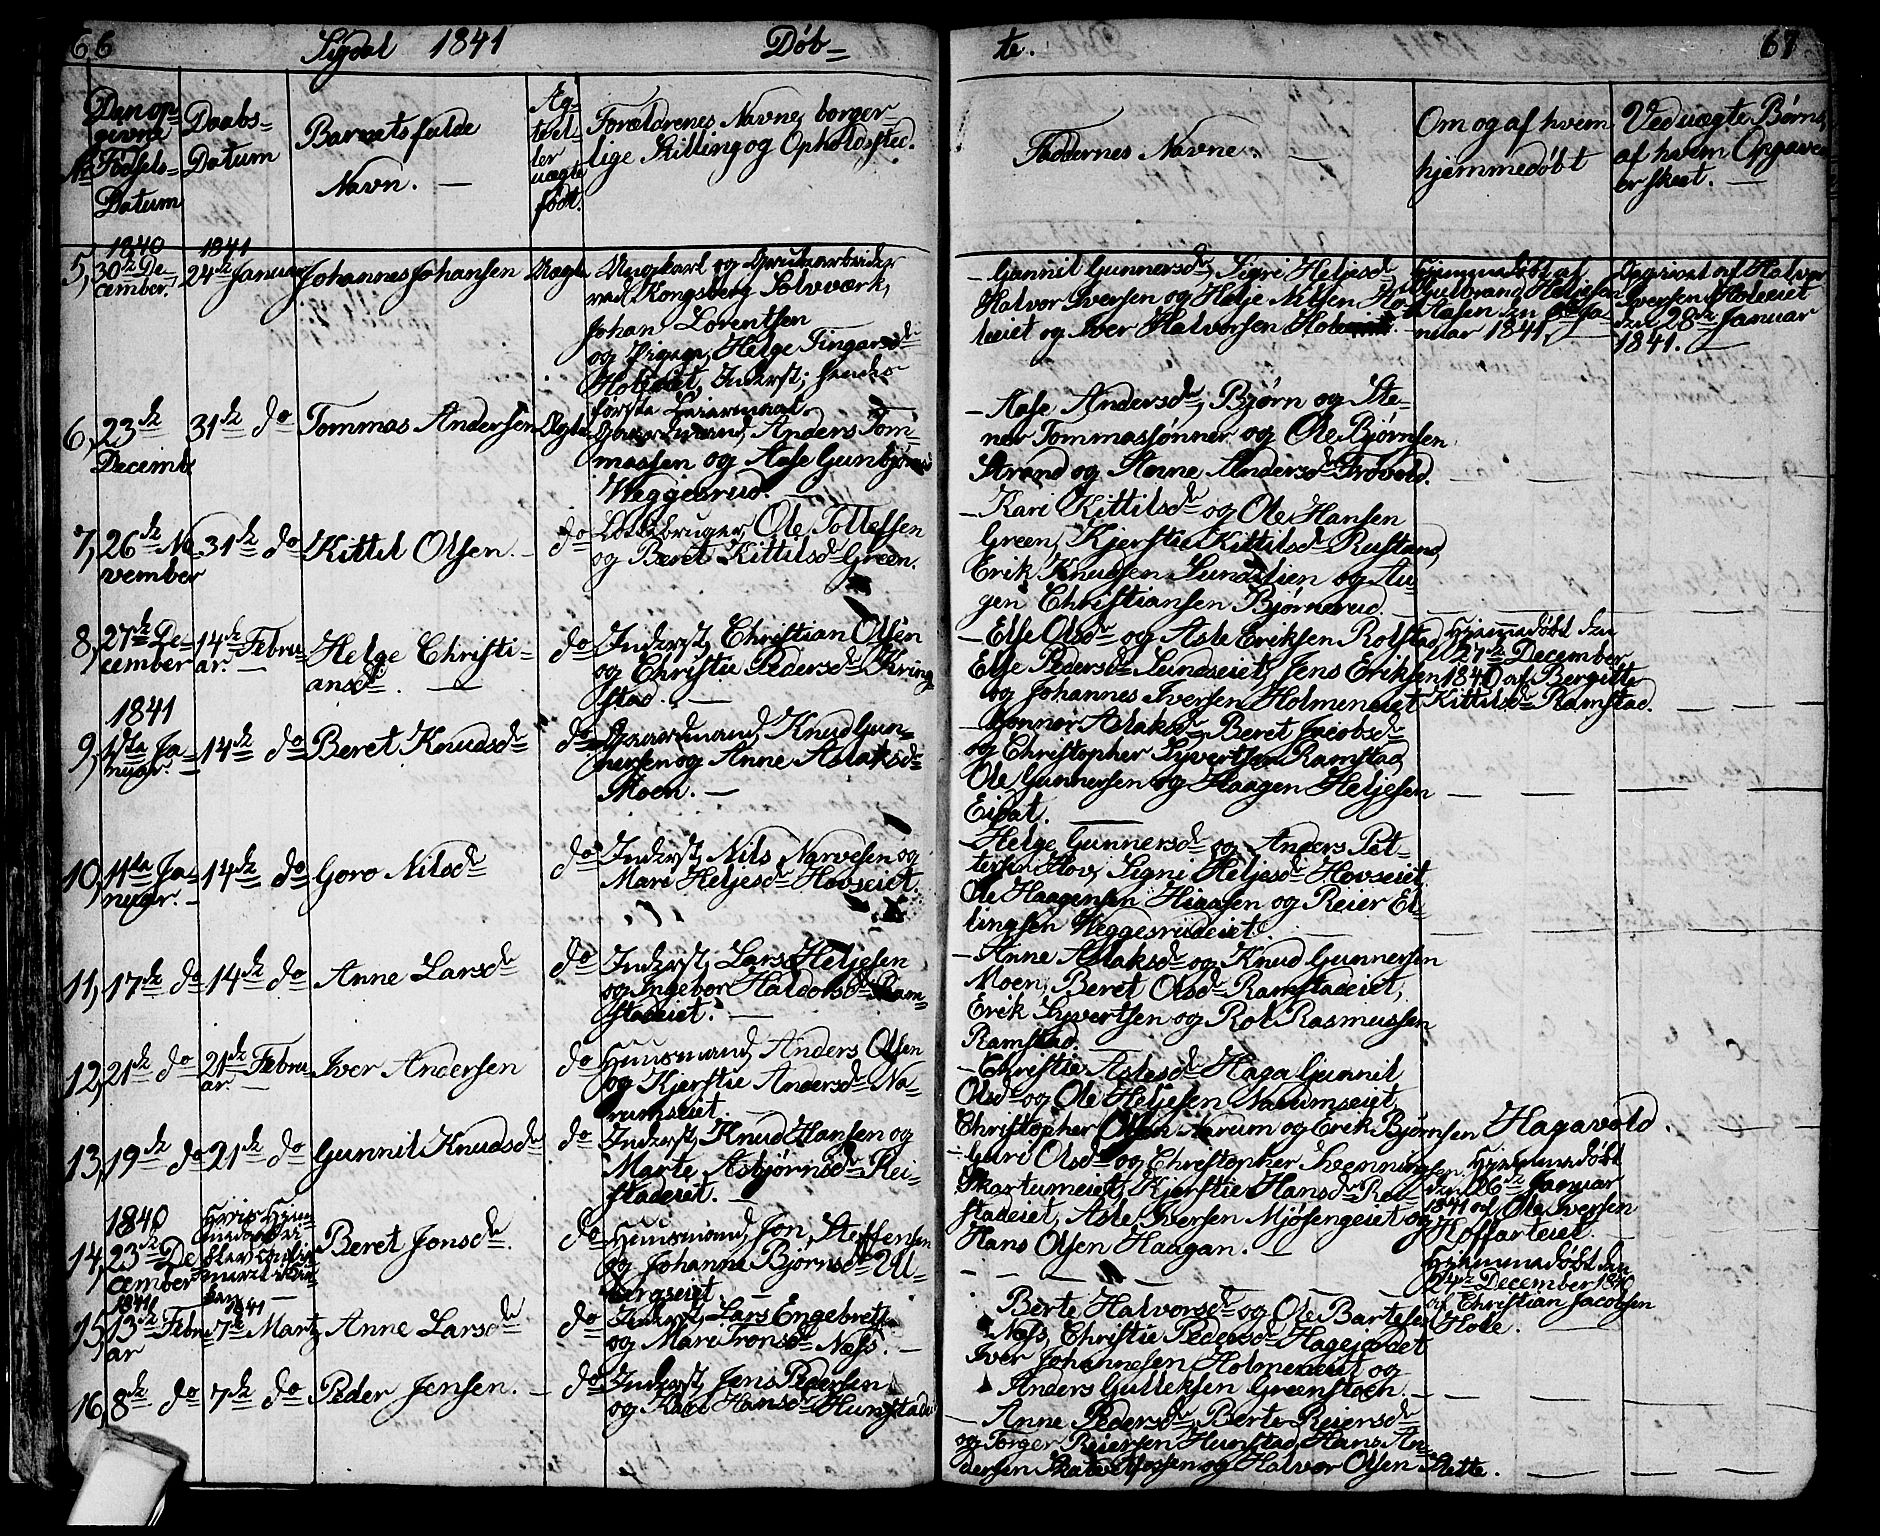 66 Sigdal 1841 Døb-
te. 67
Nr
Den op-
givne
Fødsels-
Datum
Daabs-
Datum
Barnets fulde
Navn. —
Æg-
te el-
ler
uægte
født.
Forældrenes Navne, borger-
lige Stilling og Opholdssted.
Faddernes Navne. —
Om og af hvem
hjemmedøbt
Ved uægte Børn,
af hvem Opgaven
er skeet. —
1840 1841
5, 30te De-
cember. 24de Januar Johannes Johansen Uægte
Ungkarl og Grubearbeider
ved Kongsberg Sølvværk,
Johan Lorentsen
og Pigen, Helge Fingarsdr
Holeeiet, Inderst; hendes
første Leiermaal.
— Gunnil Gunnersdr, Sigri Heljesdr
Halvor Iversen og Helje Nilsen Ho-
leeiet og Iver Halvorsen
Hjemmedøbt af
Gulbrand Heljesen
Hasen den 6te Ja-
nuar 1841. —
Opgivet af Halvor
Iversen Holeeiet
den 28de Januar
1841. —
6, 23de
Decembr 31te do Tommas Andersen Ægte
Gaardmand, Anders Tom-
massen og Aase Gunbjørnsdr
Weggesrud. —
— Aase Andersdr, Bjørn og Ste-
ner Tommassønner og Ole Bjørnsen
Strand og Anne Andersdr Prøvold.
7, 26de No-
vember 31te do Kittil Olsen. — do
Lodsbruger, Ole Tollefsen
og Beret Kittilsdr Green.
— Kari Kittilsdr og Ole Hansen
Green, Kjerstie Kittilsdr Rustand,
Erik Knudsen Lundstien og Au-
gen Christiansen Bjørnerud.
8, 27de De-
cember 14de Febru-
ar. — Helge Christi-
ansdr. — do
Inderst, Christian Olsen
og Christie Pedersdr Kring-
stad. —
— Else Olsdr og Asle Eriksen Rolstad
Else Pedersdr Lundseiet, Jens Eriksen
og Johannes Iversen Holmeneiet
Hjemmedøbt den
27de December
1840 af Bergitte
Kittilsdr Ramstad.
1841
9, 1ste Ja-
nuar. — 14de do Beret Knudsdr do
Gaardmand, Knud Gun-
nersen og Anne Aslaksdr
Moen. —
— Gonner Aslaksdr, Beret Jacobsdr
og Christopher Syvertsen Ramstad,
Ole Gunnersen og Haagen Heljesen
Eidal.
10, 11te Ja-
nuar. — 14de do Goro Nilsdr do
Inderst, Nils Narvesen og
Mari Heljesdr Hovseiet.
— Helge Gunnersdr og Anders Pet-
tersen Hov, Signi Heljesdr Hovseiet,
Ole Haagensen Hiaasen og Reier El-
lingsen Weggesrudeiet.
11, 17de do 14de do Anne Larsdr do
Inderst, Lars Heljesen
og Ingebor Haldorsdr Ram-
stadeiet. —
— Anne Aslaksdr og Knud Gunnersen
Moen, Beret Olsdr Ramstadeiet,
Erik Syvertsen og Rol Rasmussen
Ramstad.
12, 21de do 21de Febru-
ar. — Iver Andersen do
Huusmand, Anders Olsen
og Kjerstie Andersdr Na-
rumseiet. —
— Christie Aslesdr Haga Gunnil
Olsdr og Ole Heljesen Narumseiet,
Christopher Olsen Narum og Erik Bjørnsen Hagavold.
13, 19de do 21de do Gunnil Knudsdr do
Inderst, Knud Hansen og
Marte Asbjørnsdr Rei-
stadeiet. —
— Guri Olsdr og Christopher Svenningsen
Skartumeiet, Kjerstie Hansdr Rei-
stadeiet, Asle Iversen Mjøsengeiet og
Hans Olsen Haagan. —
Hjemmedøbt
den 26de Januar
1841 af Ole Iversen
Hoffarteiet.
1840
14, 23de De-
cember Beret Jonsdr. do
Huusmand, Jon Steffensen
og Johanne Bjørnsdr Ul-
bergseiet. —
Hjemmedøbt den
24de December 1840
af Christian Jacobsen
Hole. —
1841 1841
15, 13de Febru-
ar 7de Martz Anne Larsdr do
Inderst, Lars Engebretsen
og Mari Tronsdr Næss. —
Berte Halvorsdr og Ole Bartesen
Næss, Christie Pedersdr Hagejordet
Iver Johannesen Holmeneiet og
Anders Gulleksen Greenstoen. —
16, 8de do 7de do Peder Jensen. — do
Inderst, Jens Pedersen
og Kari Hansdr Hunstad
— Anne Pedersdr, Berte Reiersdr
og Torger Reiersen Hunstad, Hans An-
dersen og Halvor Olsen Slette.